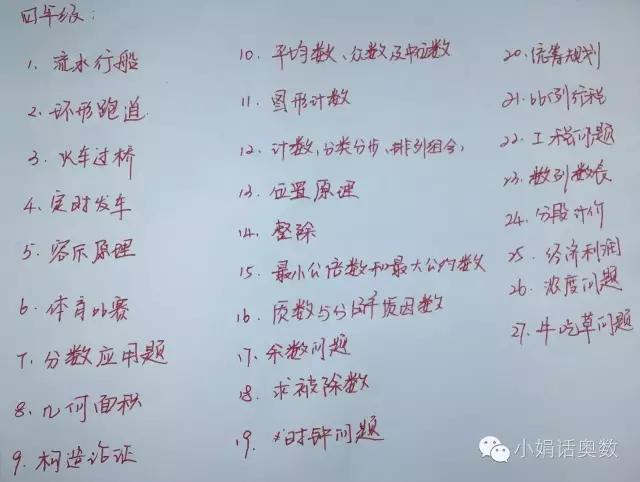 四年级：
1. 流水行船
2. 环形跑道
3. 火车过桥
4. 定时发车
5. 容斥原理
6. 体育比赛
7. 分数应用题
8. 几何面积
9. 构造论证
10. 平均数、众数及中位数
11. 图形计数
12. 计数，分类分步、排列组合，
13. 位置原理
14. 整除
15. 最小公倍数和最大公约数
16. 质数与分解质因数
17. 余数问题
18. 求被除数
19. 时钟问题
20. 统筹规划
21. 比例行程
22. 工程问题
23. 数列数表
24. 分段计价
25. 经济利润
26. 浓度问题
27. 牛吃草问题
小娟话奥数